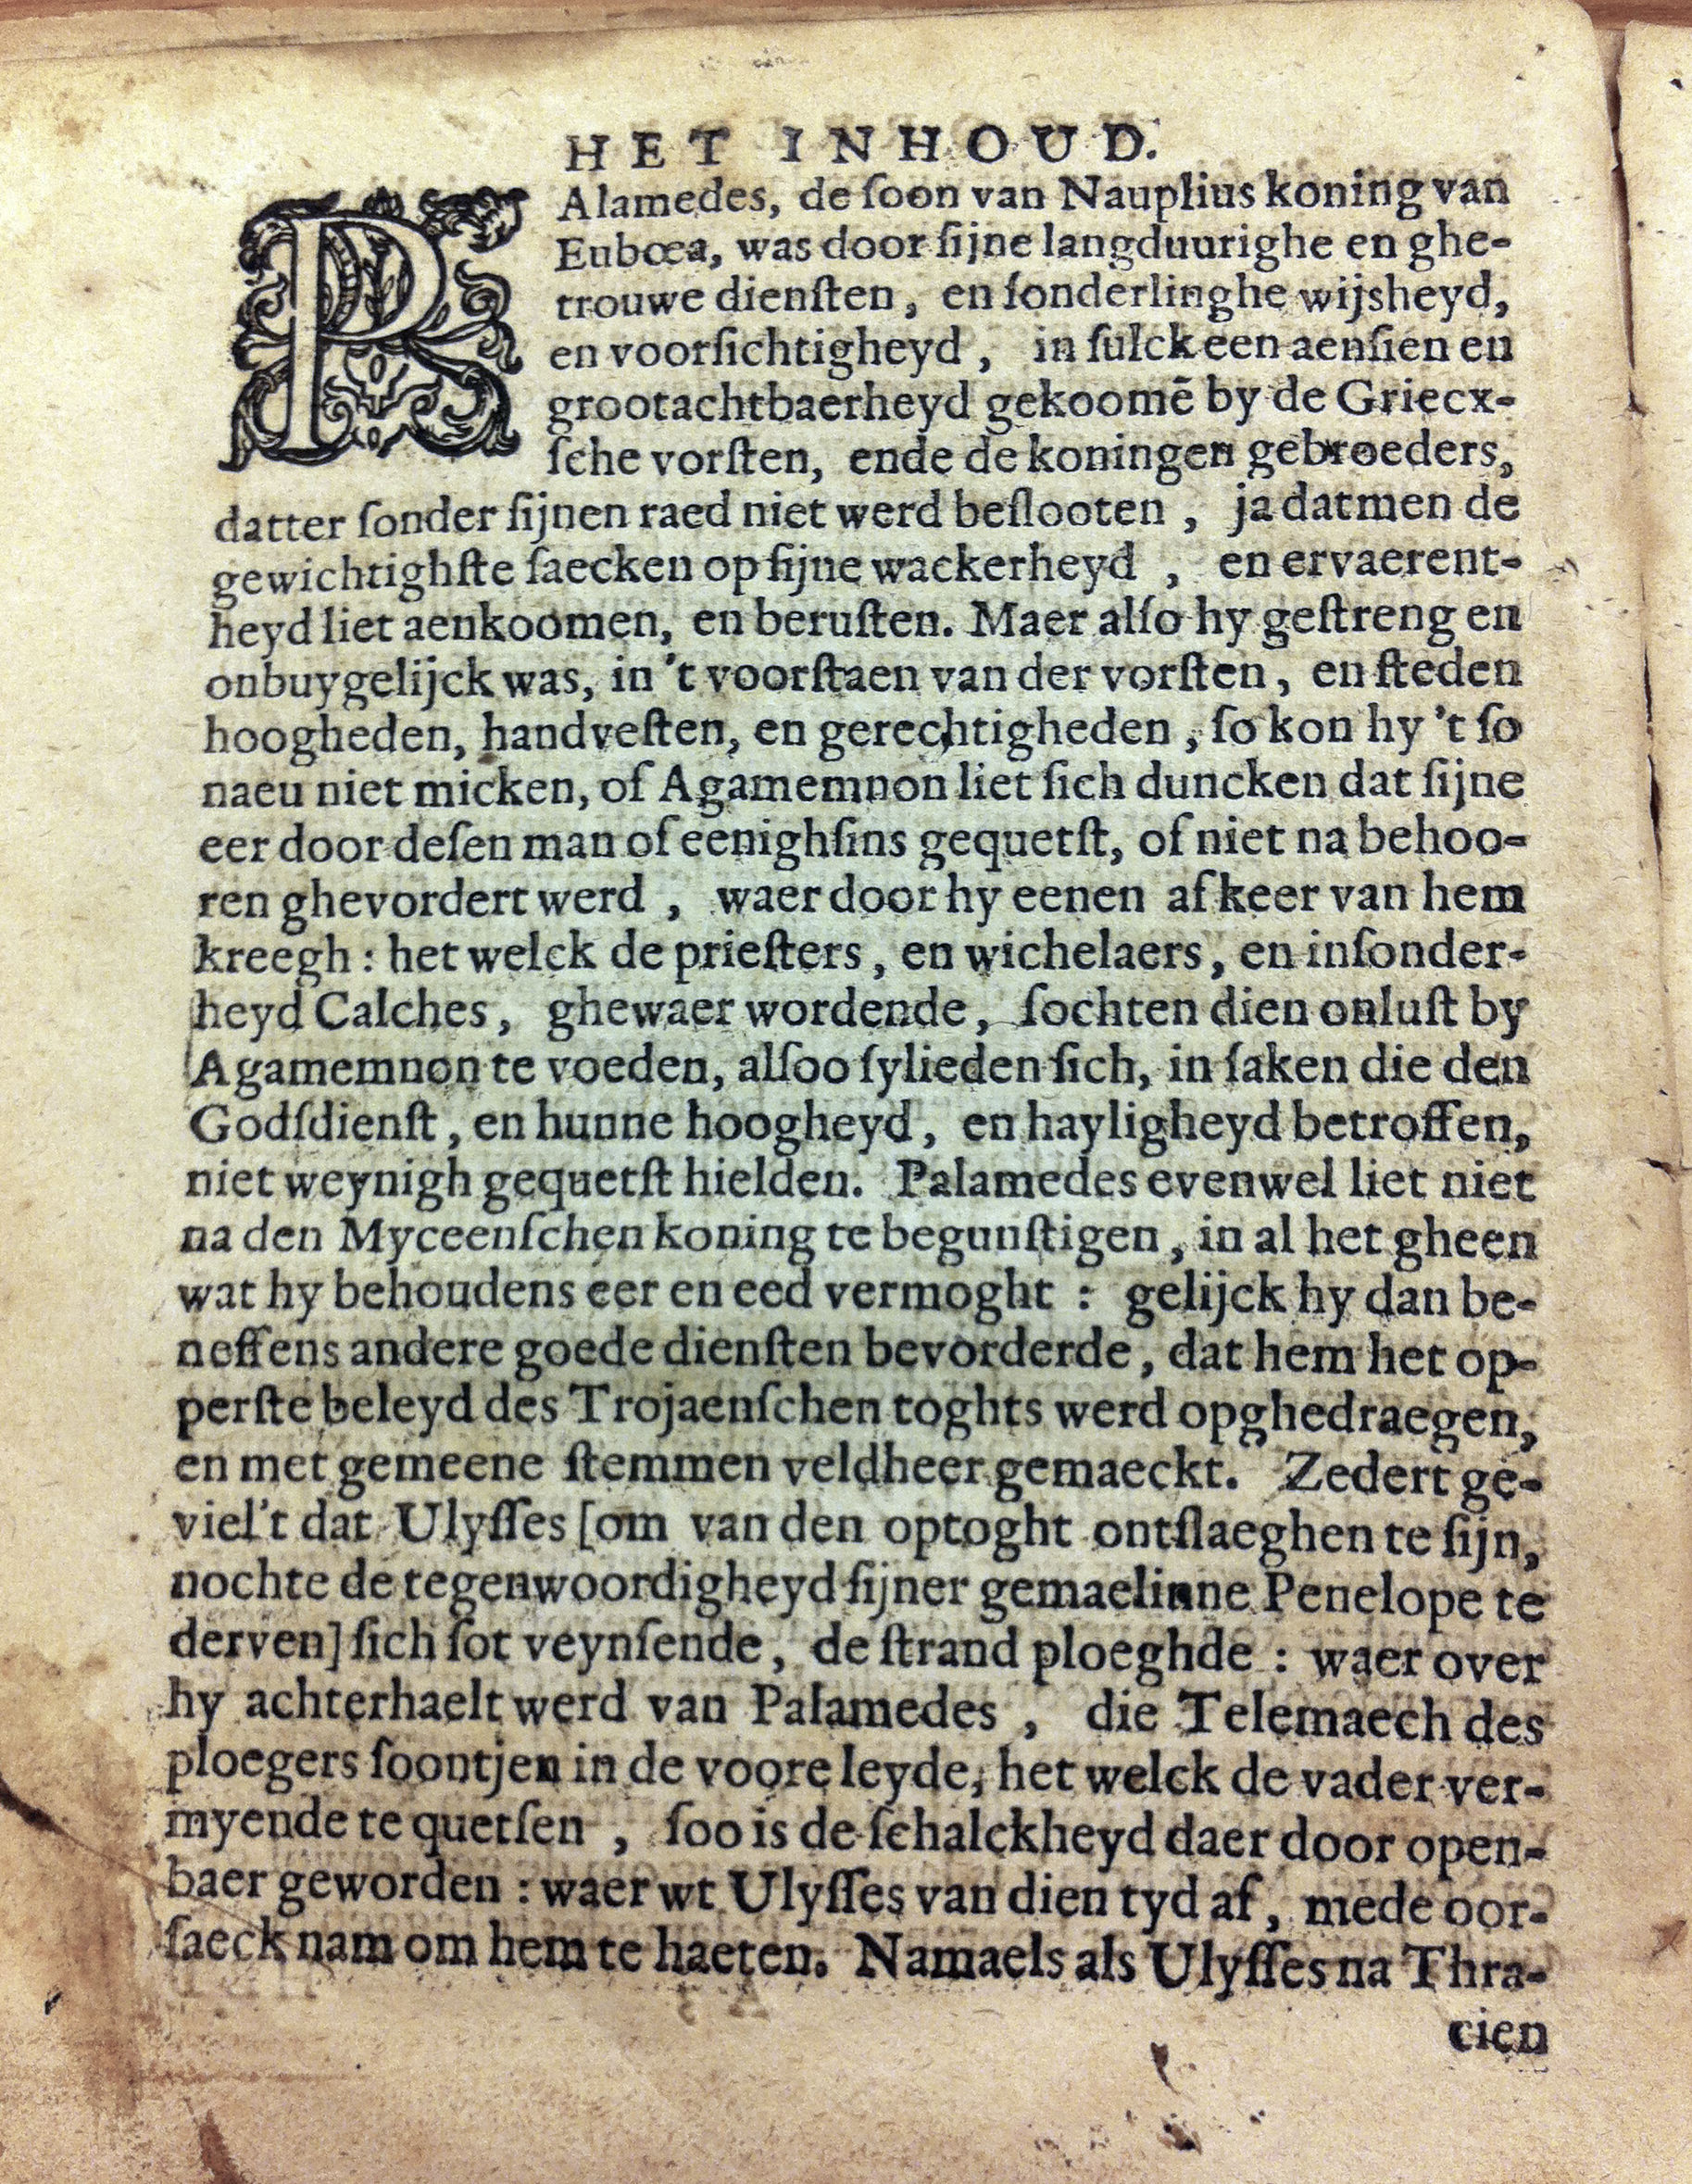 HET INHOUD.
PAlamedes, de ſoon van Nauplius koning van
Eubœa, was door ſijne langduurighe en ghe-
trouwe dienſten, en ſonderlinghe wijsheyd,
en voorſichtigheyd, in ſulck een aenſien en
grootachtbaerheyd gekoomẽ by de Griecx-
ſche vorſten, ende de koningen gebroeders,
datter ſonder ſijnen raed niet werd beſlooten, ja datmen de
gewichtighſte ſaecken op ſijne wackerheyd, en ervaerent-
heyd liet aenkoomen, en beruſten. Maer alſo hy geſtreng en
onbuygelijck was, in 't voorſtaen van der vorſten, en ſteden
hoogheden, handveſten, en gerechtigheden, ſo kon hy 't ſo
naeu niet micken, of Agamemnon liet ſich duncken dat ſijne
eer door deſen man of eenighſins gequetſt, of niet na behoo-
ren ghevordert werd, waer door hy eenen afkeer van hem
kreegh: het welck de prieſters, en wichelaers, en inſonder-
heyd Calches, ghewaer wordende, ſochten dien onluſt by
Agamemnon te voeden, alſoo ſylieden ſich, in ſaken die den
Godſdienſt, en hunne hoogheyd, en hayligheyd betroffen,
niet weynigh gequetſt hielden. Palamedes evenwel liet niet
na den Myceenſchen koning te begunſtigen, in al het gheen
wat hy behoudens eer en eed vermoght: gelijck hy dan be-
neffens andere goede dienſten bevorderde, dat hem het op-
perſte beleyd des Trojaenſchen toghts werd opghedraegen,
en met gemeene ſtemmen veldheer gemaeckt. Zedert ge-
viel't dat Ulyſſes [om van den optoght ontſlaeghen te ſijn,
nochte de tegenwoordigheyd ſijner gemaelinne Penelope te
derven] ſich ſot veynſende, de ſtrand ploeghde: waer over
hy achterhaelt werd van Palamedes, die Telemaech des
ploegers ſoontjen in de voore leyde, het welck de vader ver-
myende te quetſen, ſoo is de ſchalckheyd daer door open-
baer geworden: waer wt Ulyſſes van dien tyd af, mede oor-
ſaeck nam om hem te haeten. Namaels als Ulyſſes na Thra-
cien